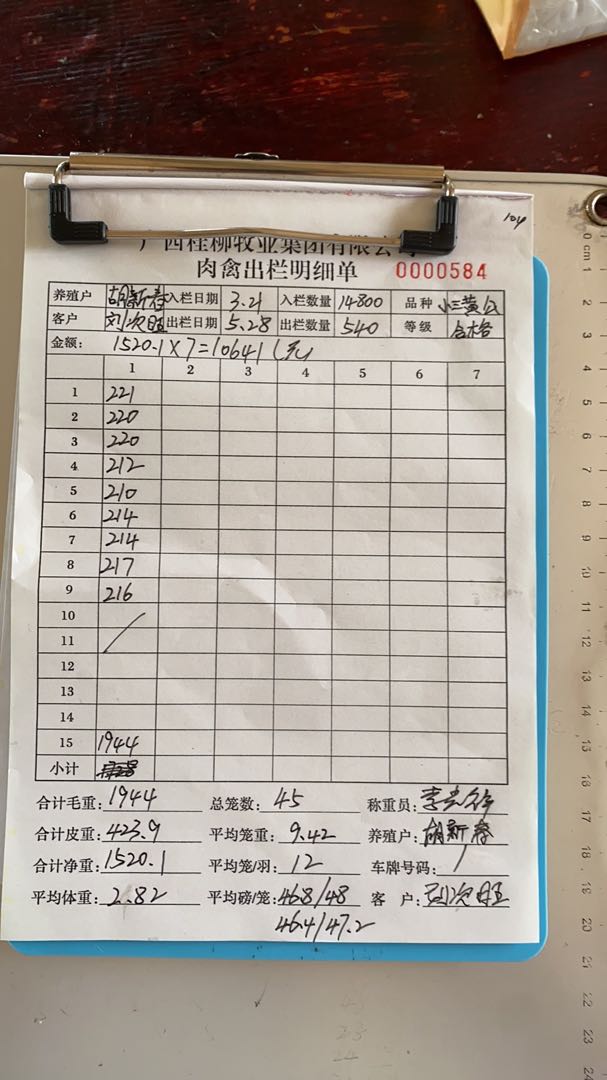 104
广西桂柳牧业集团有限公司
肉禽出栏明细单 0000584
养殖户 胡新春 入栏日期 3.21 入栏数量 14800 品种 小三黄公
客户 刘次旺 出栏日期 5.28 出栏数量 540 等级 合格
金额: 1520.1×7=10641(元)
1 2 3 4 5 6 7
1 221
2 220
3 220
4 212
5 210
6 214
7 214
8 217
9 216
10
11
12
13
14
15 1944
小计
合计毛重: 1944 总笼数: 45 称重员:
合计皮重: 423.9 平均笼重: 9.42 养殖户: 胡新春
合计净重: 1520.1 平均笼/羽: 12 车牌号码: /
平均体重: 2.82 平均磅/笼: 468/48 客户: 刘次旺
46.4/47.2
0 cm 1 2 3 4 5 6 7 8 9 10 11 12 13 14 15 16 17 18 19 20 21 22 23 24